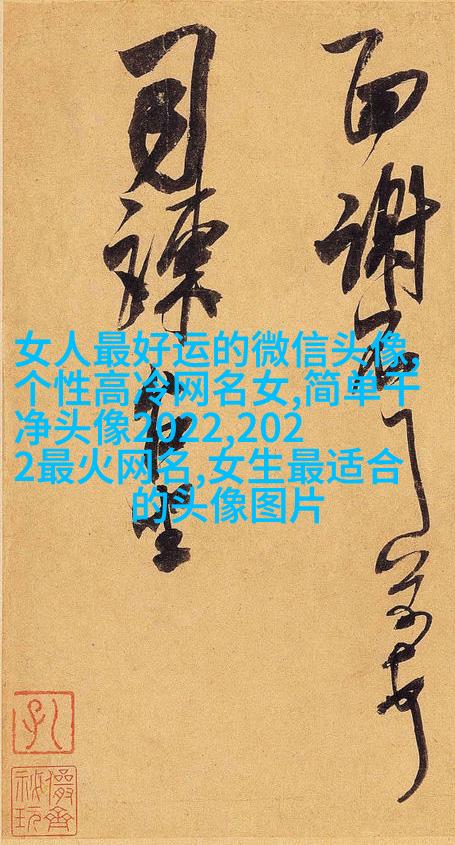 女人最好运的微信头像,
个性高冷网名女,简单干
净头像2022,202
2最火网名,女生最适合
的头像图片
面謝
司諫
儼齋
秘玩